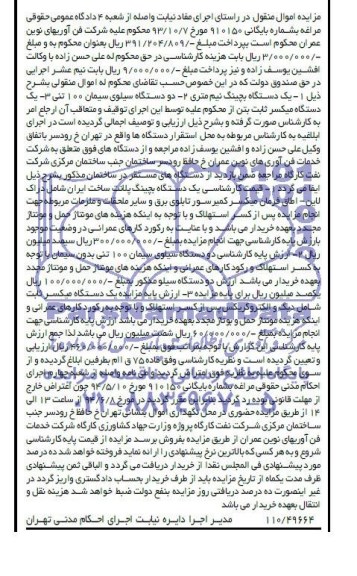 مزایده اموال منقول در راستای اجرای مفاد نیابت واصله از شعبه ۴ دادگاه عمومی حقوقی
مراغه بشماره بایگانی ۹۱۰۱۵۰ مورخ ۹۳/۱۰/۷ محکوم علیه شرکت فن آوریهای نوین
عمران محکوم است بپرداخت مبلغ /۳۹۱/۲۰۴/۸۰۹ ریال بعنوان محکوم به و مبلغ
/۳/۰۰۰/۰۰۰ ریال بابت هزینه کارشناسی در حق محکوم له علی حسن زاده با وکالت
افشین یوسف زاده و نیز پرداخت مبلغ /۹/۰۰۰/۰۰۰ ریال بابت نیم عشر اجرایی
در حق صندوق دولت که در این خصوص حسب تقاضای محکوم له اموال منقولی بشرح
ذیل ۱- یک دستگاه بچینگ نیم متری ۲- دو دستگاه سیلوی سیمان ۱۰۰ تنی ۳- یک
دستگاه میکسر ثابت بتن از محکوم علیه توسط این اجرای توقیف و متعاقب آن ارجاع امر
به کارشناس صورت گرفته و بشرح ذیل ارزیابی و توصیف اجمالی گردیده است در اجرای
ابلاغیه به کارشناس مربوطه به محل استقرار دستگاه ها واقع در تهران خ رودسر باتفاق
وکیل علی حسن زاده و افشین یوسف زاده مراجعه و از دستگاه های فوق متعلق به شرکت
خدمات فن آوری های نوین عمران خ حافظ رودسر ساختمان جنب ساختمان مرکزی شرکت
نفت کارگاه مراجعه ضمن بازدید از دستگاه های مستقر در ساختمان مذکور بشرح ذیل
ایفا می گردد ۱- قیمت کارشناسی یک دستگاه بچینگ پلانت ساخت ایران شامل دراگ
لاین- اطاق فرمان میکسر کمپرسور تابلوی برق و سایر ملحقات و ملزمات مربوطه جهت
انجام مزایده پس از کسر استهلاک و با توجه به اینکه هزینه های مونتاژ حمل و مونتاژ
مجدد بعهده خریدار می باشد و با عنایت به رکورد کارهای عمرانی در وضعیت موجود
بارزش پایه کارشناسی جهت انجام مزایده بمبلغ /۳۰۰/۰۰۰/۰۰۰ ریال سیصد میلیون
ریال ۲- ارزش پایه کارشناسی دو دستگاه سیلوی سیمان ۱۰۰ تنی بدون سیمان با توجه
بکسر استهلاک و رکود کارهای عمرانی و اینکه هزینه های مونتاژ حمل و مونتاژ مجدد
بعهده خریدار می باشد ارزش دو دستگاه سیلو مذکور بمبلغ /۱۰۰/۰۰۰/۰۰۰ ریال
یکصد میلیون ریال برای پایه مزایده ۳- ارزش پایه مزایده یک دستگاه میکسر ثابت
شامل دیگ و الکتروگیربکس پس از کسر استهلاک و با توجه به رکود کارهای عمرانی و
اینکه هزینه مونتاژ حمل و مونتاژ مجدد بعهده خریدار می باشد ارزش پایه کارشناسی جهت
انجام مزایده بمبلغ /۶۰/۰۰۰/۰۰۰ ریال شصت میلیون ریال می باشد لذا جمع ارزش
پایه کارشناسی این گزارش با توجه بمراتب فوق بمبلغ /۴۶۰/۰۰۰/۰۰۰ ریال ارزیابی
و تعیین گردیده است و نظریه کارشناسی وفق ماده ۷۵ ق اام بطرفین ابلاغ گردیده و از
سوی محکوم علیه به نظریه فوق اعتراض گردیده
احکام مدنی حقوقی مراغه بشماره بایگانی ۹۱۰۱۵۰ مورخ ۹۴/۵/۱۰ چون اعتراض خارج
از مهلت قانونی بوده رد گردید مقرر گردید در مورخ از ساعت ۱۳ الی
۱۴ از طریق مزایده حضوری در محل نگهداری اموال بنشانی تهران خ حافظ خ رودسر جنب
ساختمان مرکزی شرکت نفت کارگاه پروژه وزارت جهاد کشاورزی کارگاه شرکت خدمات
فن آوریهای نوین عمران از طریق مزایده بفروش برسد مزایده از قیمت پایه کارشناسی
شروع و به هر کسی که بالاترین نرخ پیشنهادی را ارائه نماید فروخته خواهد شد ده درصد
مورد پیشنهادی فی المجلس نقدا از خریدار دریافت می گردد و الباقی ثمن پیشنهادی
ظرف مدت یکماه از تاریخ مزایده باید از طرف خریدار بحساب دادگستری واریز گردد در
غیر اینصورت ده درصد دریافتی روز مزایده بنفع دولت ضبط خواهد شد هزینه نقل و
انتقال بعهده خریدار می باشد
۱۱۰/۴۹۶۶۴ مدیر اجرا دایره نیابت اجرای احکام مدنی تهران